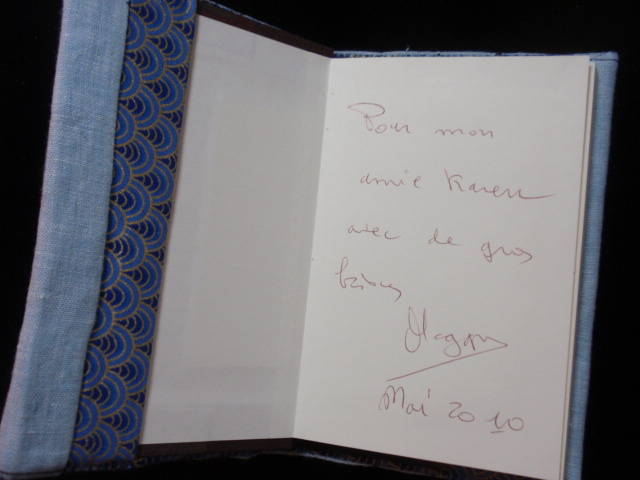 Pour mon
amie Karen
avec de gros
bisous
Mai 2010